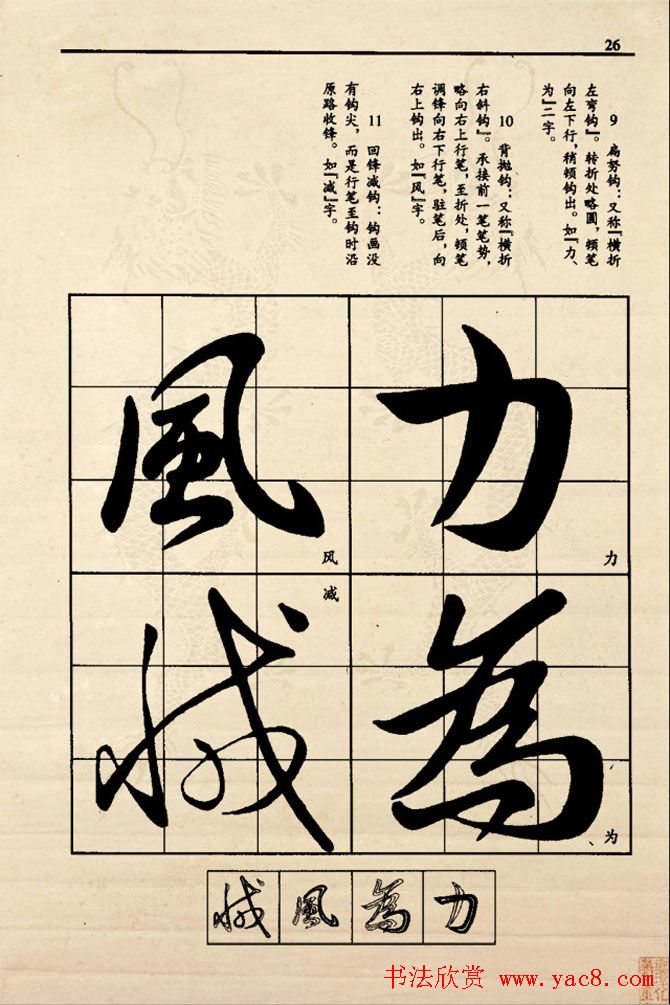 26
9 扁努钩：又称『横折
左弯钩』。转折处略圆，顿笔
向左下行，稍顿钩出。如『力、
为』二字。
10 背抛钩：又称『横折
右斜钩』。承接前一笔笔势，
略向右上行笔，至折处，顿笔
调锋向右下行笔，驻笔后，向
右上钩出。如『风』字。
11 回锋减钩：钩画没
有钩尖，而是行笔至钩时沿
原路收锋。如『减』字。
力
力
為
为
風
风
减
减
力為風减
书法欣赏 www.yac8.com